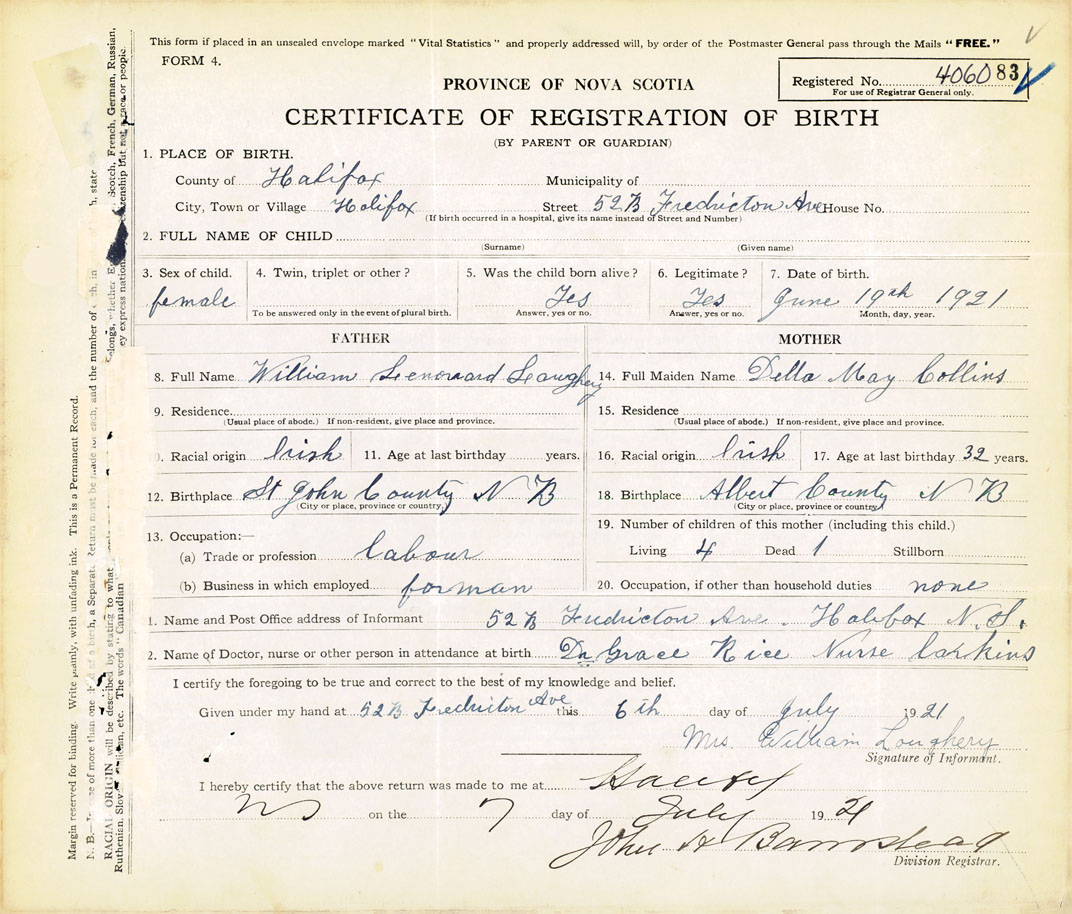 This form if placed in an unsealed envelope marked "Vital Statistics" and properly addressed will, by order of the Postmaster General pass through the Mails "FREE."
FORM 4.
Registered No. 406083
For use of Registrar General only.
PROVINCE OF NOVA SCOTIA
CERTIFICATE OF REGISTRATION OF BIRTH
(BY PARENT OR GUARDIAN)
1. PLACE OF BIRTH.
County of Halifax Municipality of
City, Town or Village Halifax Street 52 B Fredricton Ave House No.
(If birth occurred in a hospital, give its name instead of Street and Number)
2. FULL NAME OF CHILD
(Surname) (Given name)
3. Sex of child. 4. Twin, triplet or other? 5. Was the child born alive? 6. Legitimate? 7. Date of birth.
female Yes Yes June 19th 1921
To be answered only in the event of plural birth. Answer, yes or no. Answer, yes or no. Month, day, year.
FATHER MOTHER
8. Full Name William Lenoward Loughery 14. Full Maiden Name Della May Collins
9. Residence 15. Residence
(Usual place of abode.) If non-resident, give place and province. (Usual place of abode.) If non-resident, give place and province.
Racial origin Irish 11. Age at last birthday years. 16. Racial origin Irish 17. Age at last birthday 32 years.
12. Birthplace St John County N B 18. Birthplace Albert County N B
(City or place, province or country) (City or place, province or country)
19. Number of children of this mother (including this child.)
13. Occupation:—
(a) Trade or profession labour Living 4 Dead 1 Stillborn
(b) Business in which employed forman 20. Occupation, if other than household duties none
1. Name and Post Office address of Informant 52 B Fredricton Ave. Halifax N.S.
2. Name of Doctor, nurse or other person in attendance at birth Dr Grace Rice Nurse Larkins
I certify the foregoing to be true and correct to the best of my knowledge and belief.
Given under my hand at 52 B Fredricton Ave this 6th day of July 1921
Mrs. William Loughery
Signature of Informant.
I hereby certify that the above return was made to me at Halifax
N S on the 7 day of July 1921
John H Barnstead
Division Registrar.
Margin reserved for binding. Write plainly, with unfading ink. This is a Permanent Record.